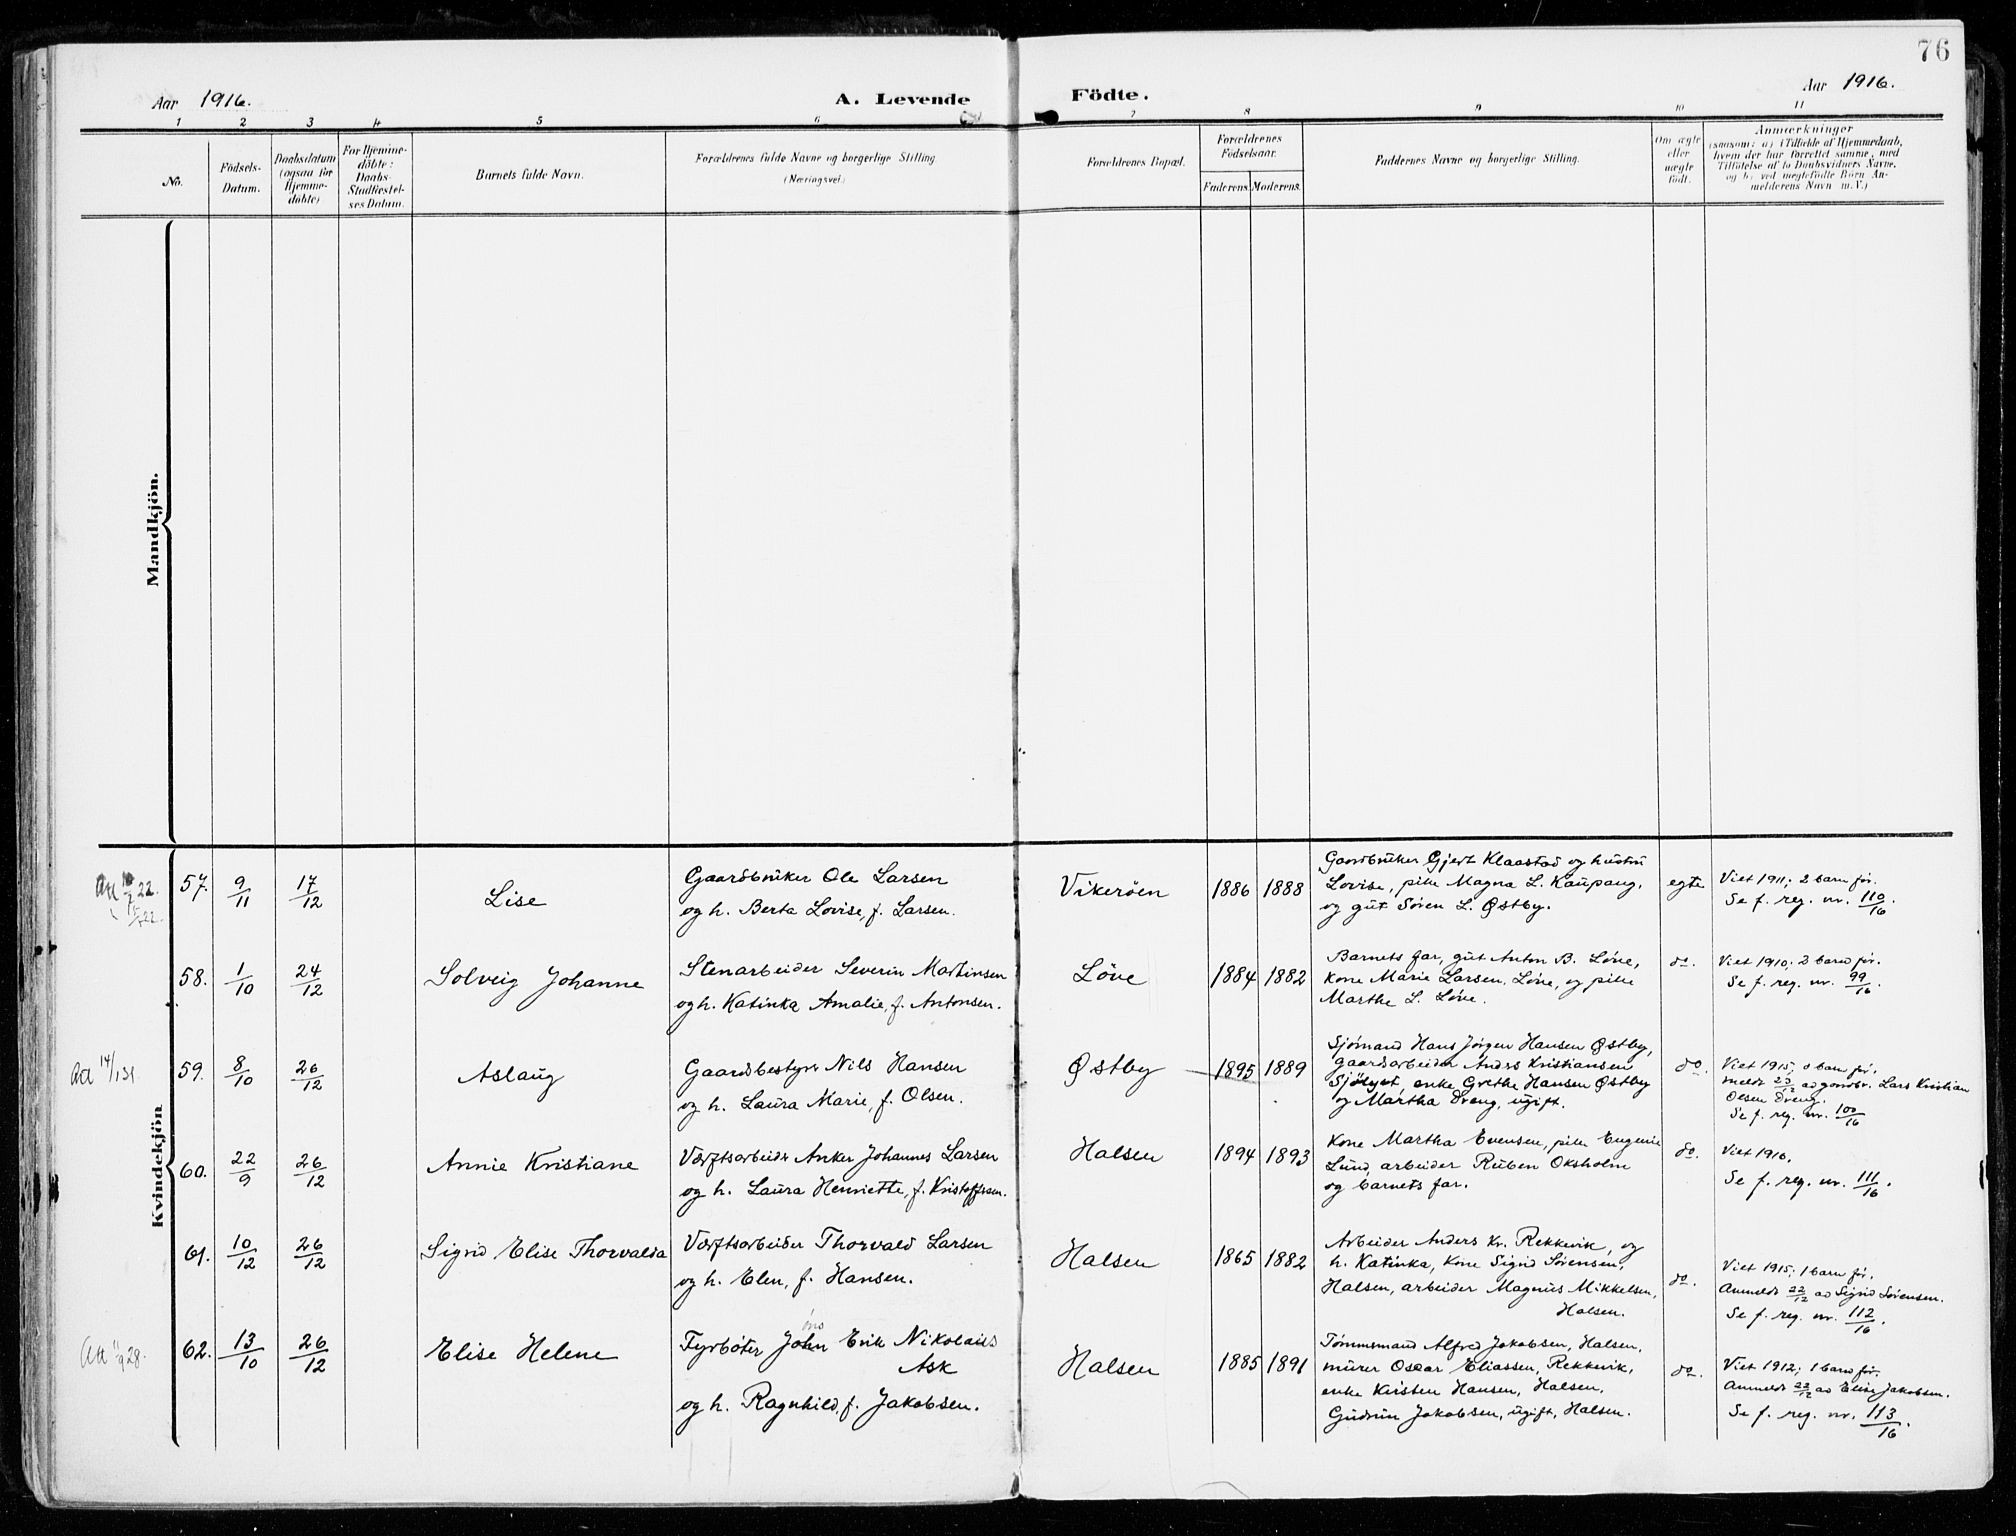 76
Aar 1916.
A. Levende Födte.
Aar 1916.
1 2 3 4 5 6 7 8 9 10 11
No.
Födsels-
Datum.
Daabsdatum
(ogsaa for
Hjemme-
døbte)
For Hjemme-
døbte:
Daabs-
Stadfæstel-
ses Datum.
Barnets fulde Navn.
Forældrenes fulde Navne og borgerlige Stilling
(Næringsvei.)
Forældrenes Bopæl.
Forældrenes
Födselsaar.
Faderens. Moderens.
Faddernes Navne og borgerlige Stilling.
Om ægte
eller
uægte
født.
Anmærkninger
(saasom: a) i Tilfælde af Hjemmedaab,
hvem der har forrettet samme, med
Tilføielse af to Daabsvidners Navne,
og b) ved uegtefødte Børn An-
melderens Navn m. V.)
Mandkjön.
Kvindekjön
57. 9/11 17/12
Lise
Gaardbruker Ole Larsen
og h. Berta Lovise, f. Larsen.
Vikerøen
1886 1888
Gaardbruker Gjert Klaastad og hustru
Lovise, pike Magna L. Kaupang,
og gut Søren L. Østby.
egte
Viet 1911; 2 barn før.
Se f. reg. nr. 110/16.
58. 1/10 24/12
Solveig Johanne
Stenarbeider Severin Martinsen
og h. Katinka Amalie, f. Antonsen.
Løve
1884 1882
Barnets far, gut Anton B. Løve,
kone Marie Larsen, Løve, og pike
Marthe L. Løve.
do.
Viet 1910; 2 barn før.
Se f. reg. nr. 99/16.
59. 8/10 26/12
Aslaug
Gaardsbestyrer Nils Hansen
og h. Laura Marie, f. Olsen.
Østby
1895 1889
Sjømand Hans Jørgen Hansen Østby,
gaardsarbeider Anders Kristiansen
Sjølyst, enke Grethe Hansen Østby
og Martha Dreng, ugift.
do.
Viet 1915; 0 barn før.
meldt 20/12 ad gaardbr. Lars Kristian
Olsen Dreng.
Se f. reg. nr. 100/16
60. 22/9 26/12
Annie Kristiane
Værftsarbeider Anker Johannes Larsen
og h. Laura Henriette, f. Kristoffersen.
Halsen
1894 1893
Kone Martha Evensen, pike Eugenie
Lund, arbeider Ruben Oksholm
og barnets far.
do.
Viet 1916.
Se f. reg. nr. 111/16.
61. 10/12 26/12
Sigrid Elise Thorvalda
Værftsarbeider Thorvald Larsen
og h. Elen, f. Hansen.
Halsen
1865 1882
Arbeider Anders Kr. Rekkevik, og
h. Katinka, kone Sigrid Sørensen,
Halsen, arbeider Magnus Mikkelsen,
Halsen.
do.
Viet 1915; 1 barn før.
Anmeldt 22/12 ad Sigrid Sørensen.
Se f. reg. nr. 112/16.
Att 11/9 28.
62. 13/10 26/12
Elise Helene
Fyrbøter John Erik Nikolaus
Ask
og h. Ragnhild, f. Jakobsen.
Halsen
1885 1891
Tømmermand Alfred Jakobsen, Halsen,
murer Oscar Eliassen, Rekkevik,
enke Kirsten Hansen, Halsen,
Gudrun Jakobsen, ugift, Halsen.
do.
Viet 1912; 1 barn før.
Anmeldt 22/12 ad Elise Jakobsen.
Se f. reg. nr. 113/16.